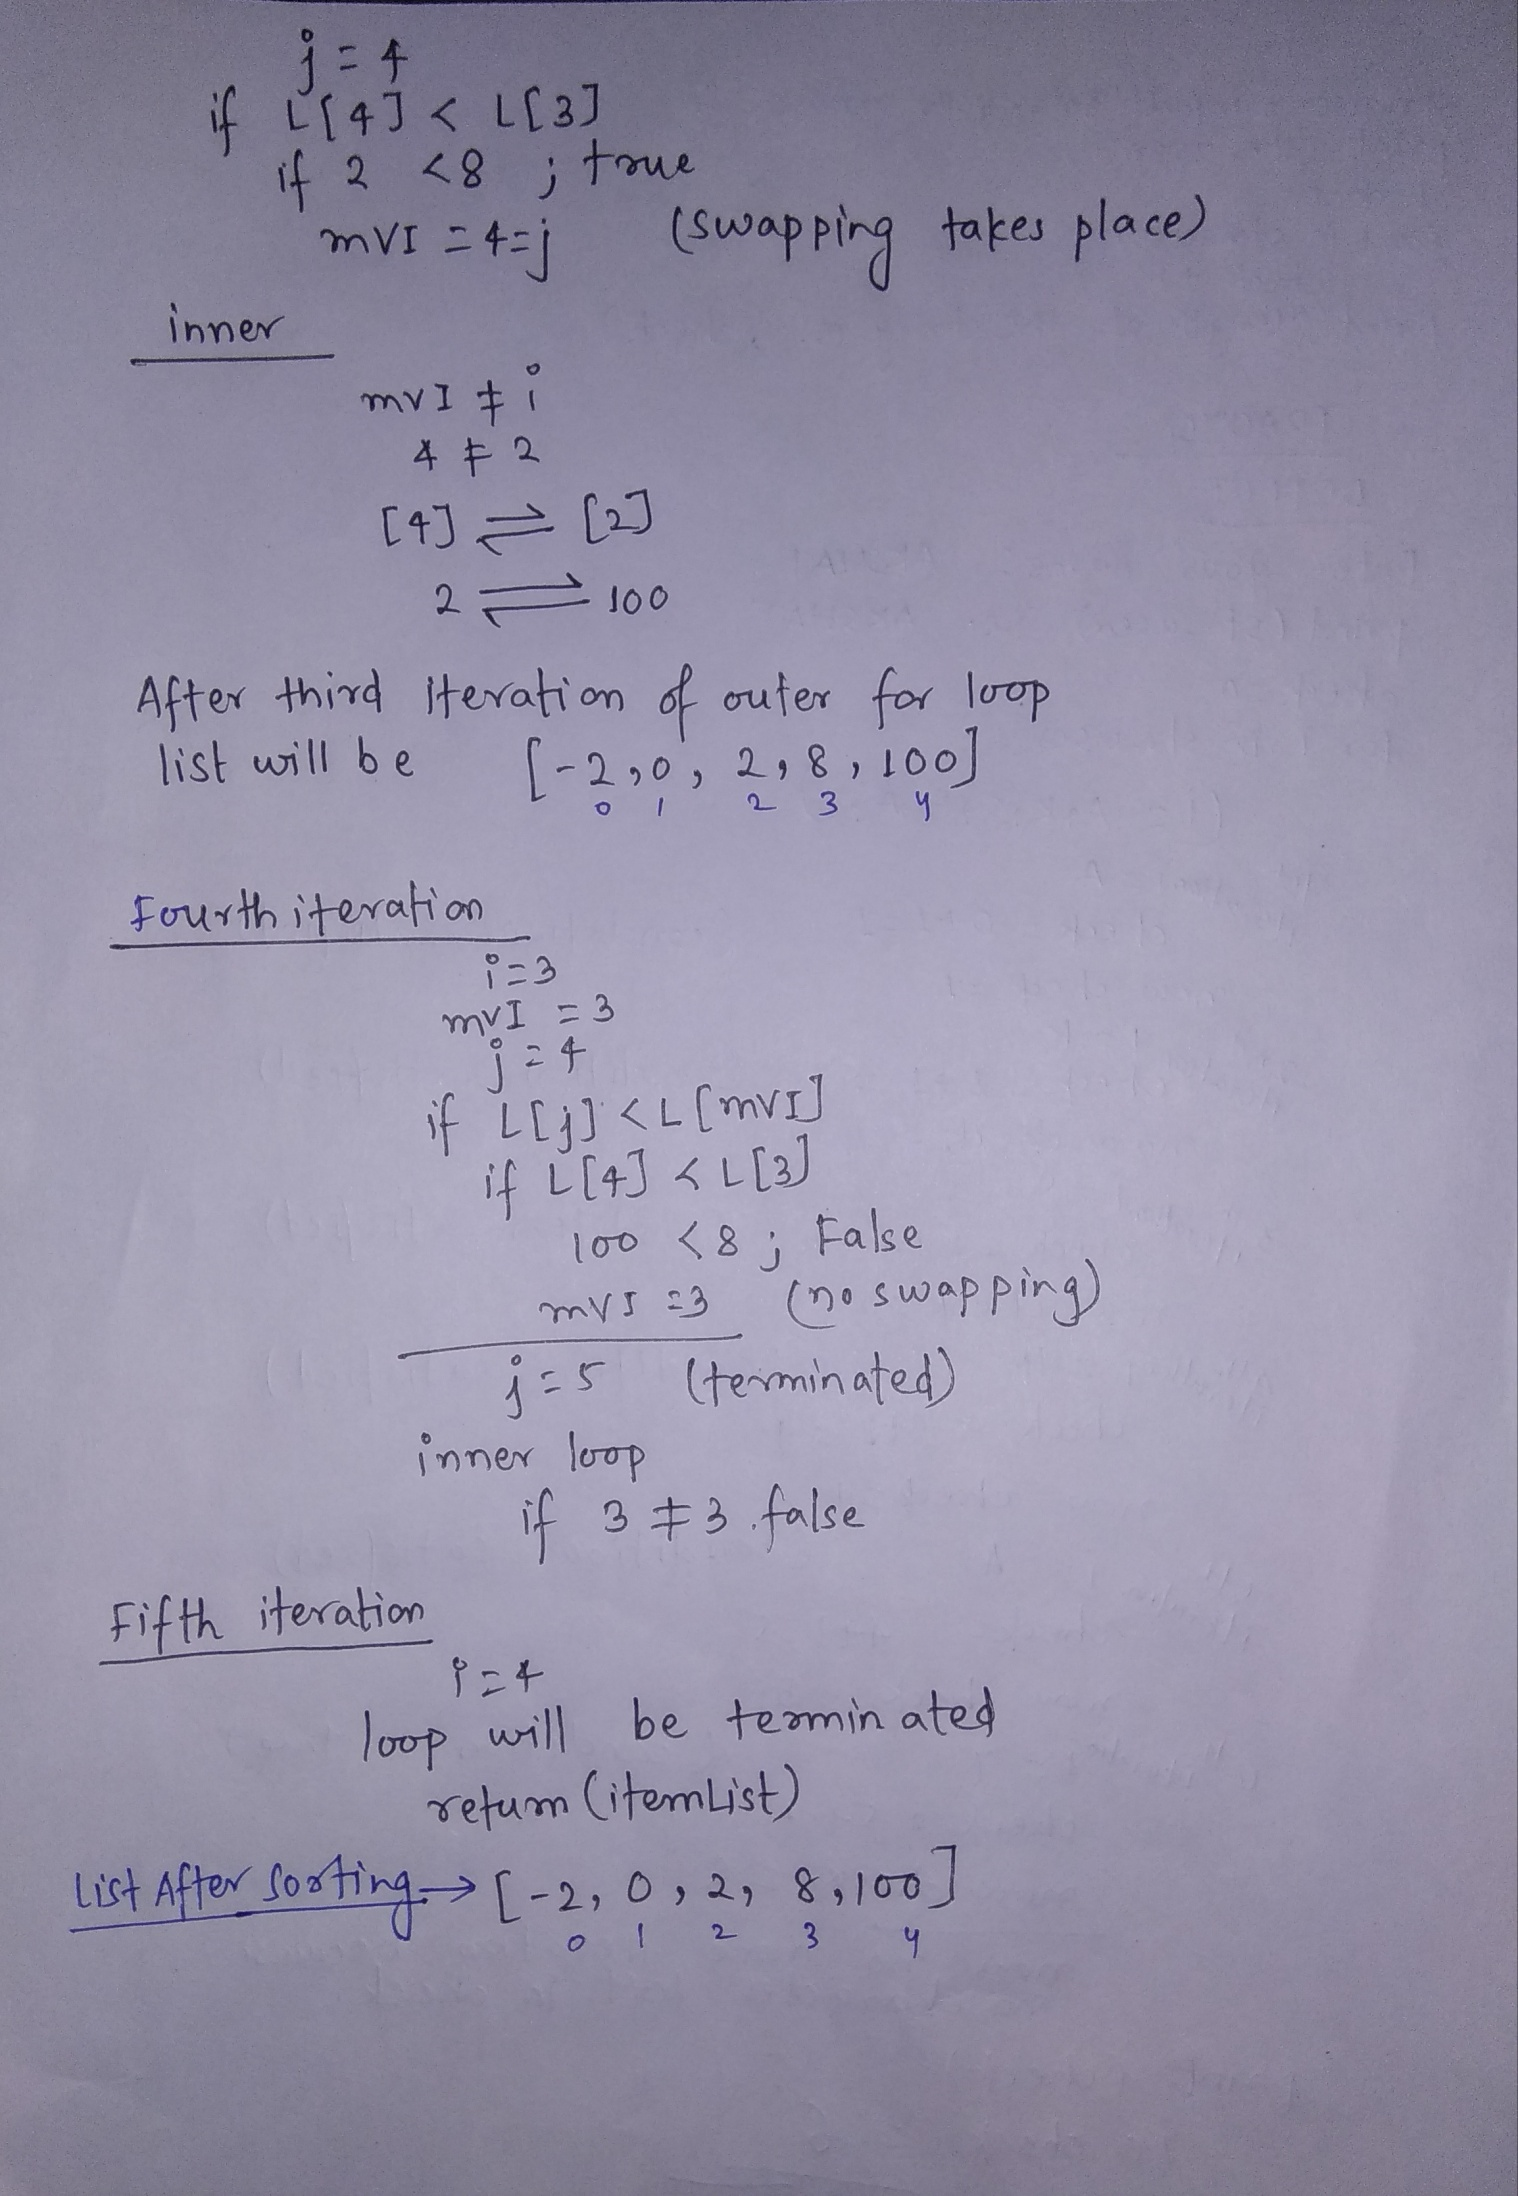 j = 4
if L[4] < L[3]
if 2 < 8 ; true
mVI = 4 = j (swapping takes place)
inner
mvI ≠ i
4 ≠ 2
[4] ⇌ [2]
2 ⇌ 100
After third iteration of outer for loop
list will be [-2, 0, 2, 8, 100]
0 1 2 3 4
Fourth iteration
i = 3
mvI = 3
j = 4
if L[j] < L[mvI]
if L[4] < L[3]
100 < 8 ; False
mvI = 3 (no swapping)
j = 5 (terminated)
inner loop
if 3 ≠ 3 false
Fifth iteration
i = 4
loop will be terminated
return (itemList)
List After Sorting → [-2, 0, 2, 8, 100]
0 1 2 3 4